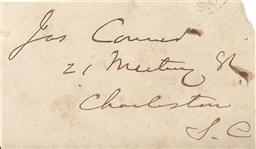 Jas Conner
21 Meeting St.
Charleston
S. C